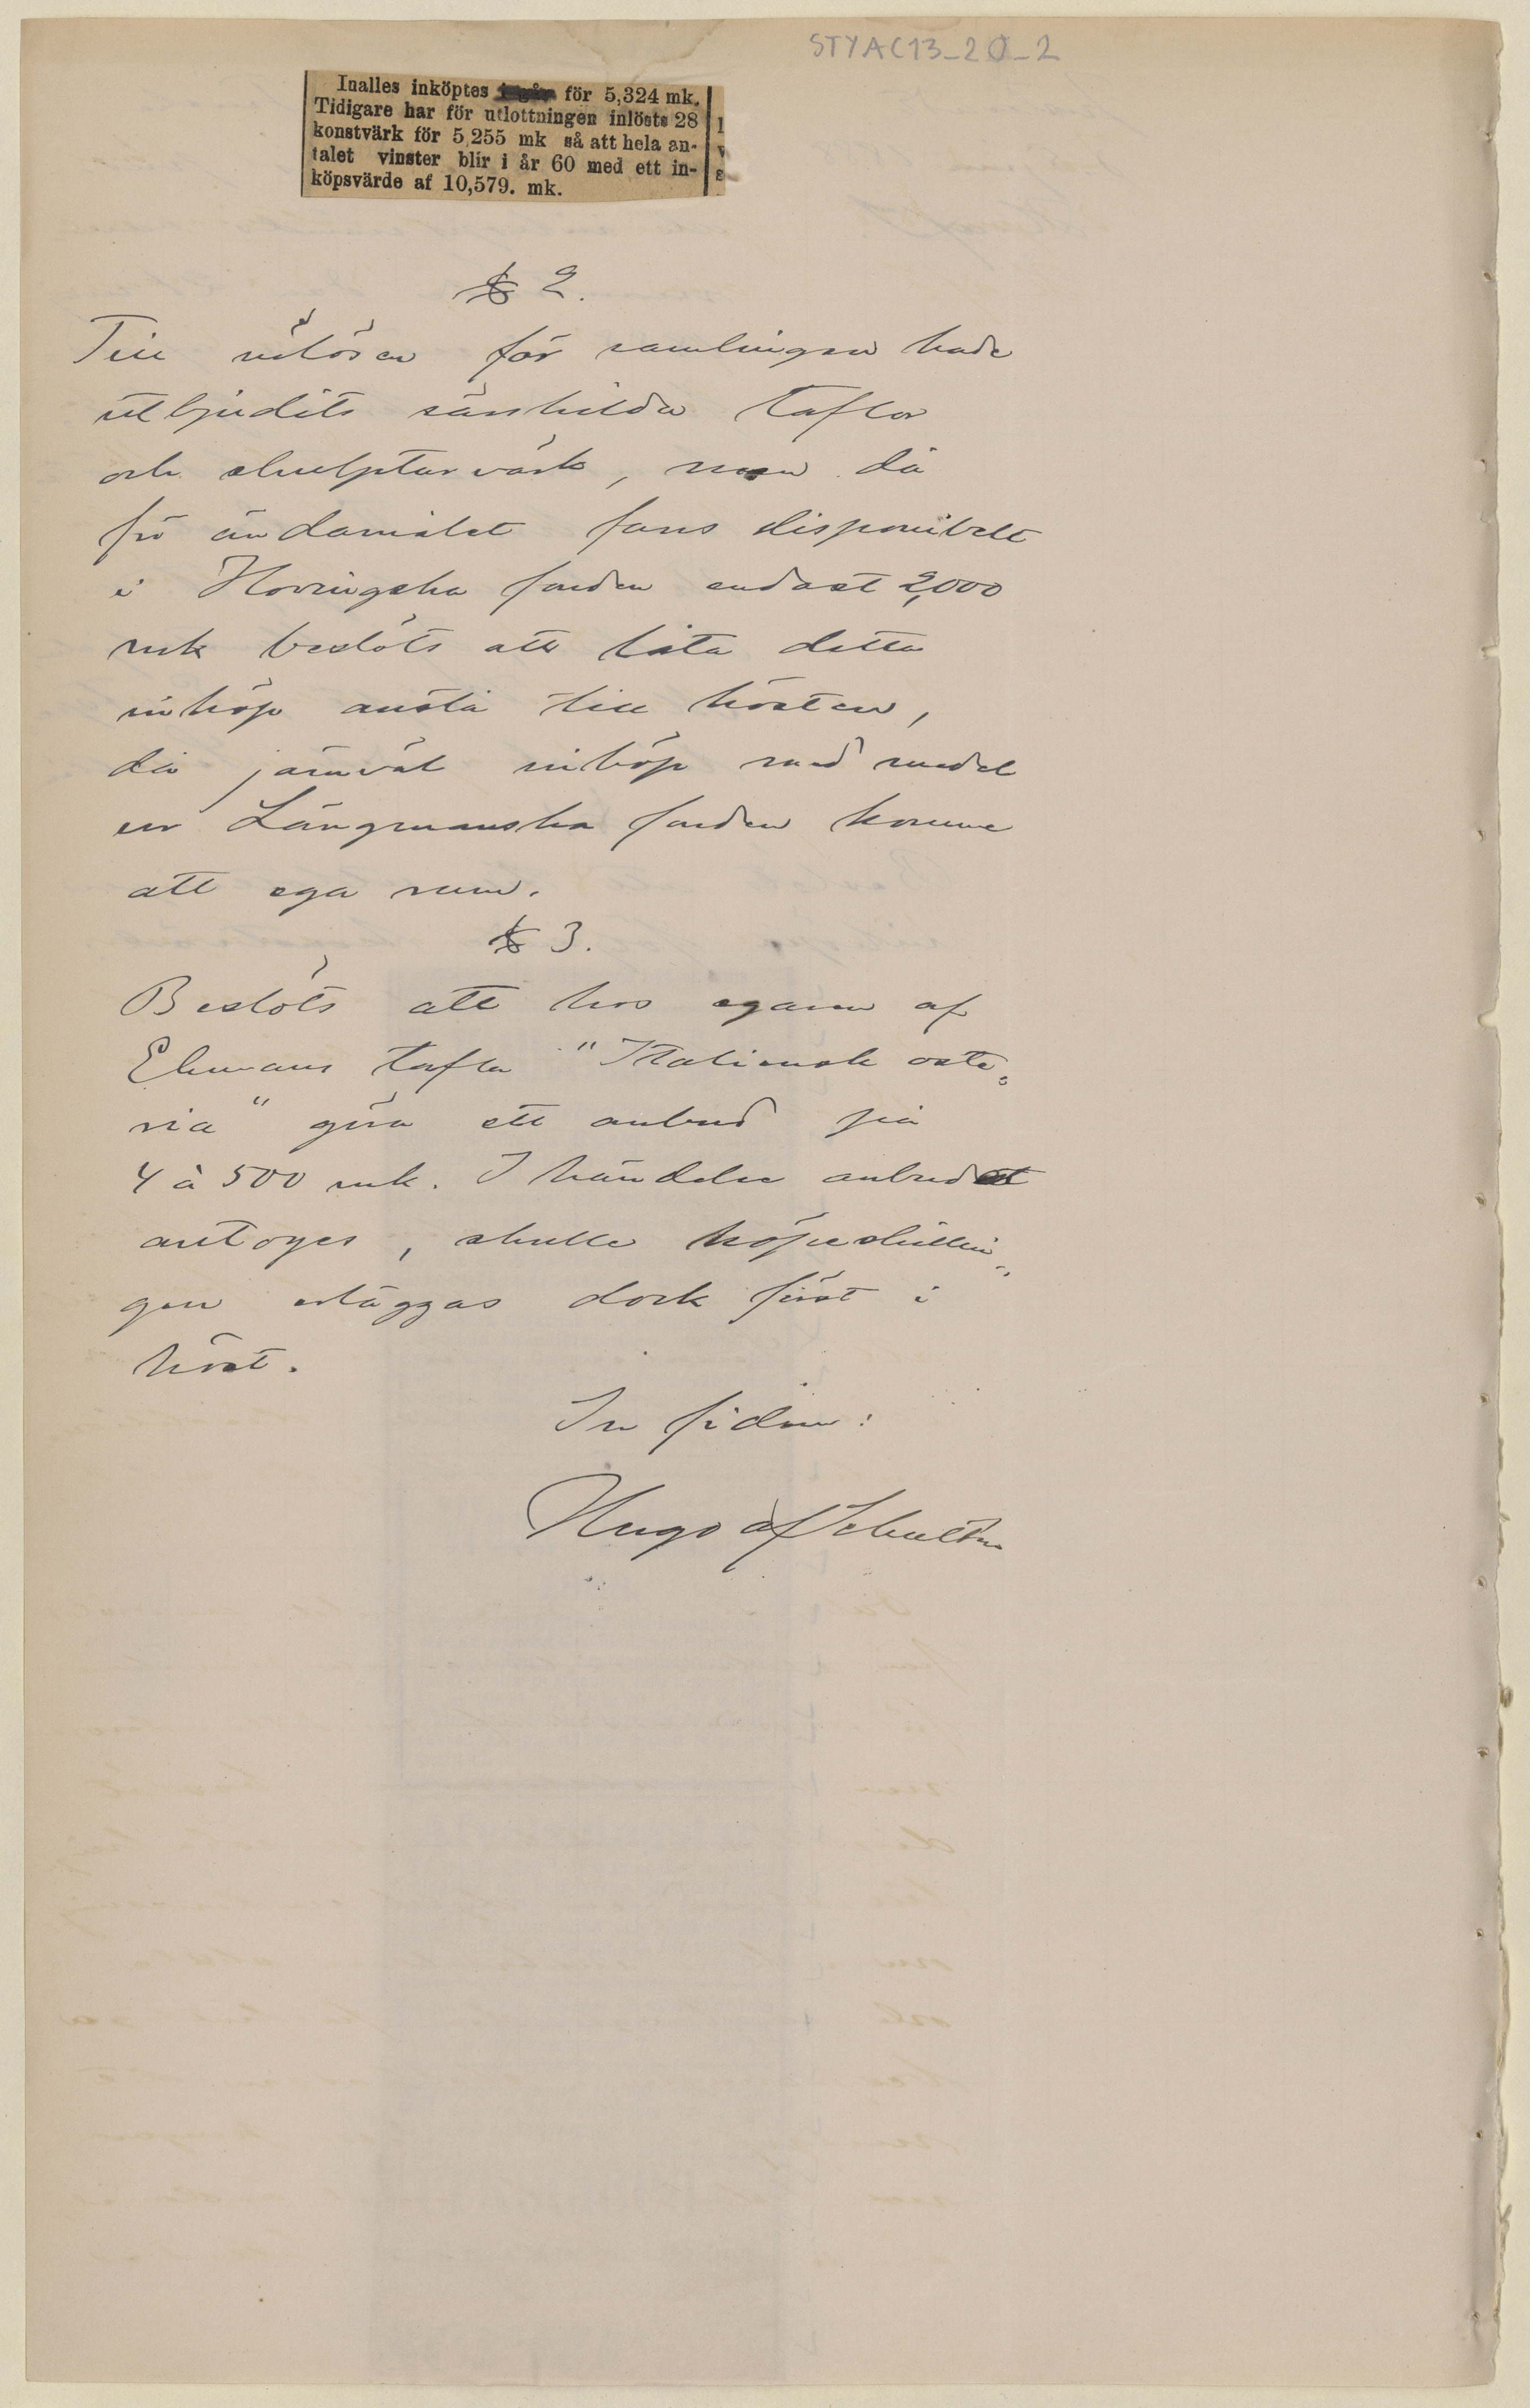 STYAC13_20_2
Inalles inköptes igår för 5,324 mk.
Tidigare har för utlottningen inlösts 28
konstvärk för 5,255 mk så att hela an-
talet vinster blir i år 60 med ett in-
köpsvärde af 10,579. mk.
§ 2.
Till inlösen för samlingen hade
utbjudits särskilda taflor
och skulpturvärk, men då
för ändamålet fans disponibelt
i Hovingska fonden endast 2,000
mk beslöts att låta detta
inköp anstå till hösten,
då jämväl inköp med medel
ur Längmanska fonden komme
att ega rum.
§ 3.
Beslöts att hos egaren af
Ekmans tafla "Italiensk oste-
ria" göra ett anbud på
4 à 500 mk. I händelse anbudet
antoges, skulle köpeskillin-
gen erläggas dock först i
höst.
In fidem:
Hugo af Schultén